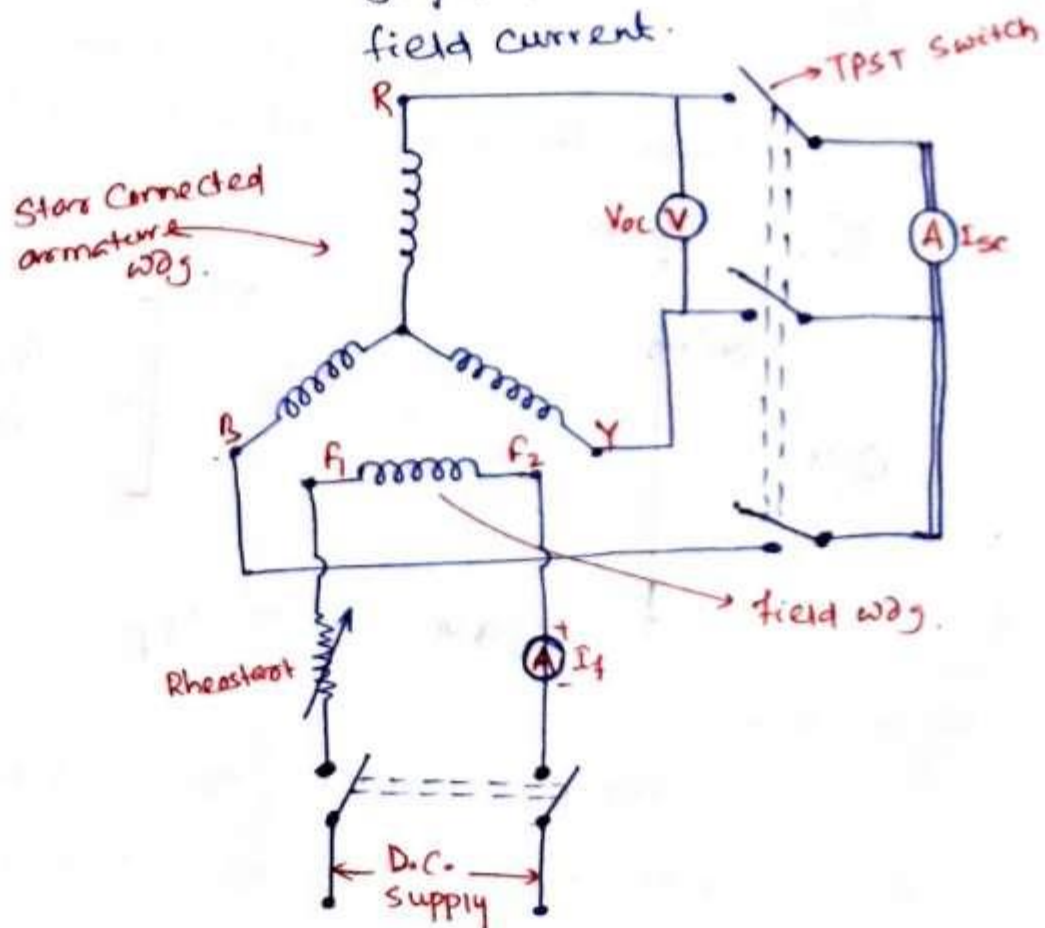 field current.
TPST Switch
R
Star Connected
armature
wdg.
Voc
V
A
Isc
B
Y
F1
F2
field wdg.
Rheostat
+
A
If
-
D.C.
supply